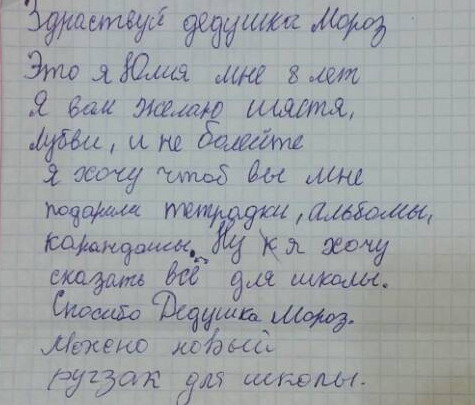 Здраствуй дедушка Мороз
Это я Юлия мне 8 лет
Я вам желаю шястя,
лубви, и не болейте
я хочу чтоб вы мне
подарили тетрадки, альбомы,
карандашы. Ну я хочу
сказать всё для школы.
Спосибо Дедушка Мороз.
Можно новый
ругзак для школы.